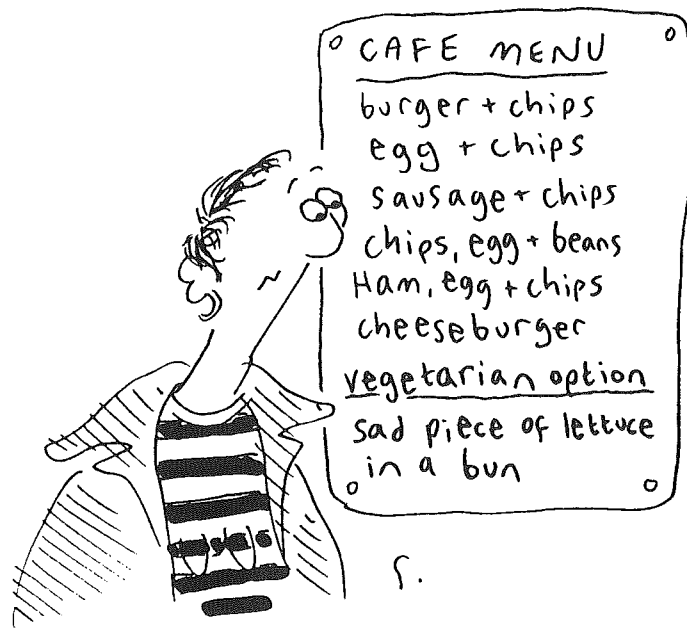 CAFE MENU
burger + chips
egg + chips
sausage + chips
chips, egg + beans
Ham, egg + chips
cheeseburger
vegetarian option
sad piece of lettuce
in a bun